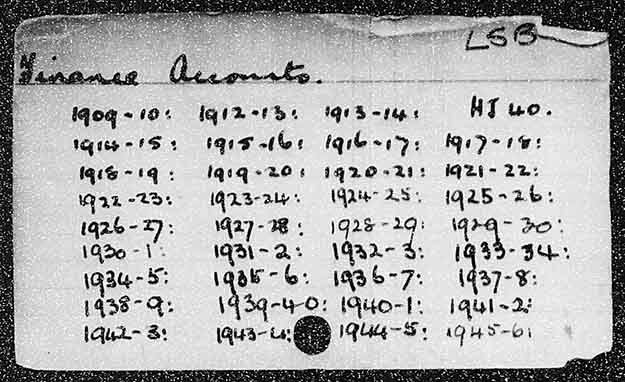 LSB
Finance Accounts.
1909-10: 1912-13: 1913-14: HJ 40.
1914-15: 1915-16: 1916-17: 1917-18:
1918-19: 1919-20: 1920-21: 1921-22:
1922-23: 1923-24: 1924-25: 1925-26:
1926-27: 1927-28: 1928-29: 1929-30:
1930-1: 1931-2: 1932-3: 1933-34:
1934-5: 1935-6: 1936-7: 1937-8:
1938-9: 1939-40: 1940-1: 1941-2:
1942-3: 1943-4: 1944-5: 1945-6: